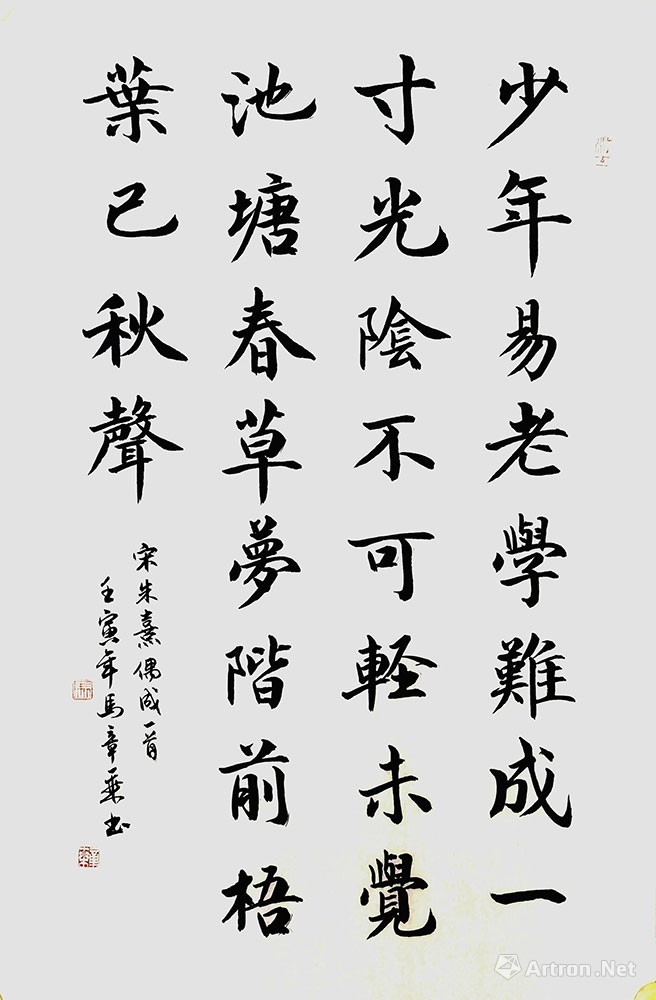 少年易老學難成一
寸光陰不可軽未覺
池塘春草夢階前梧
葉已秋聲
宋朱熹偶成一首
壬寅年馬章乘书
Artron.Net